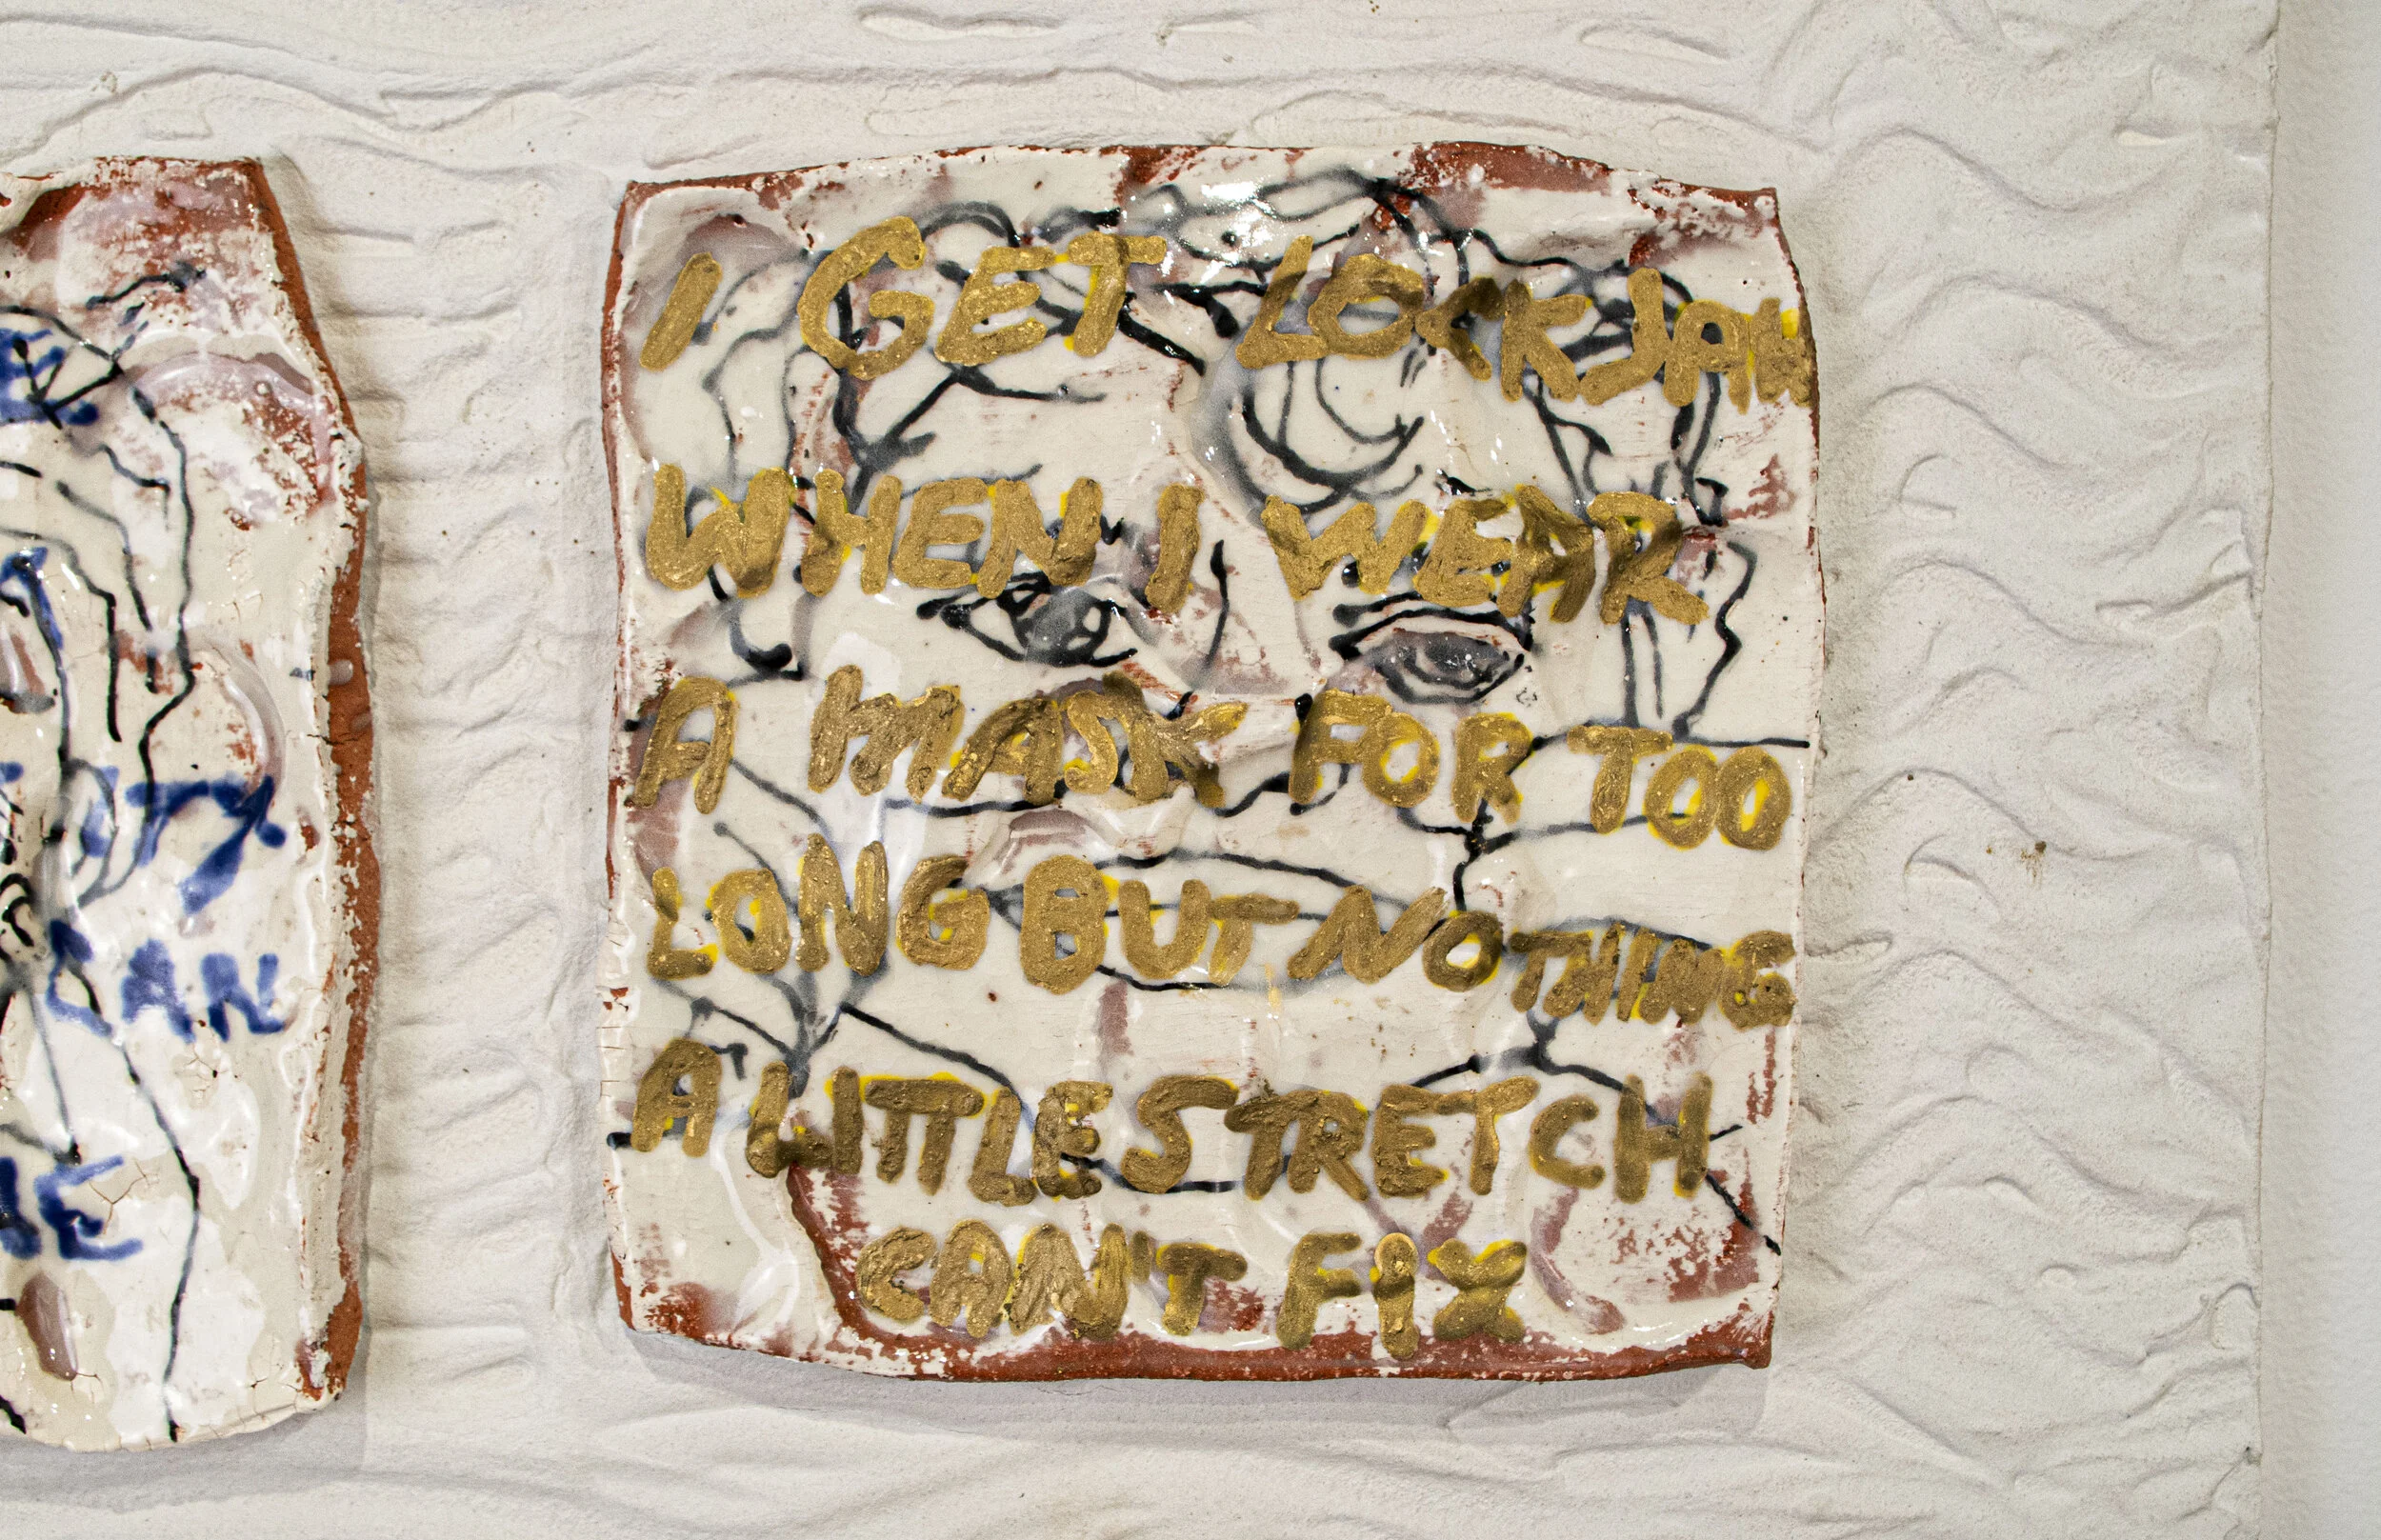 I GET LOCKJAW
WHEN I WEAR
A MASK FOR TOO
LONG BUT NOTHING
A LITTLE STRETCH
CAN'T FIX